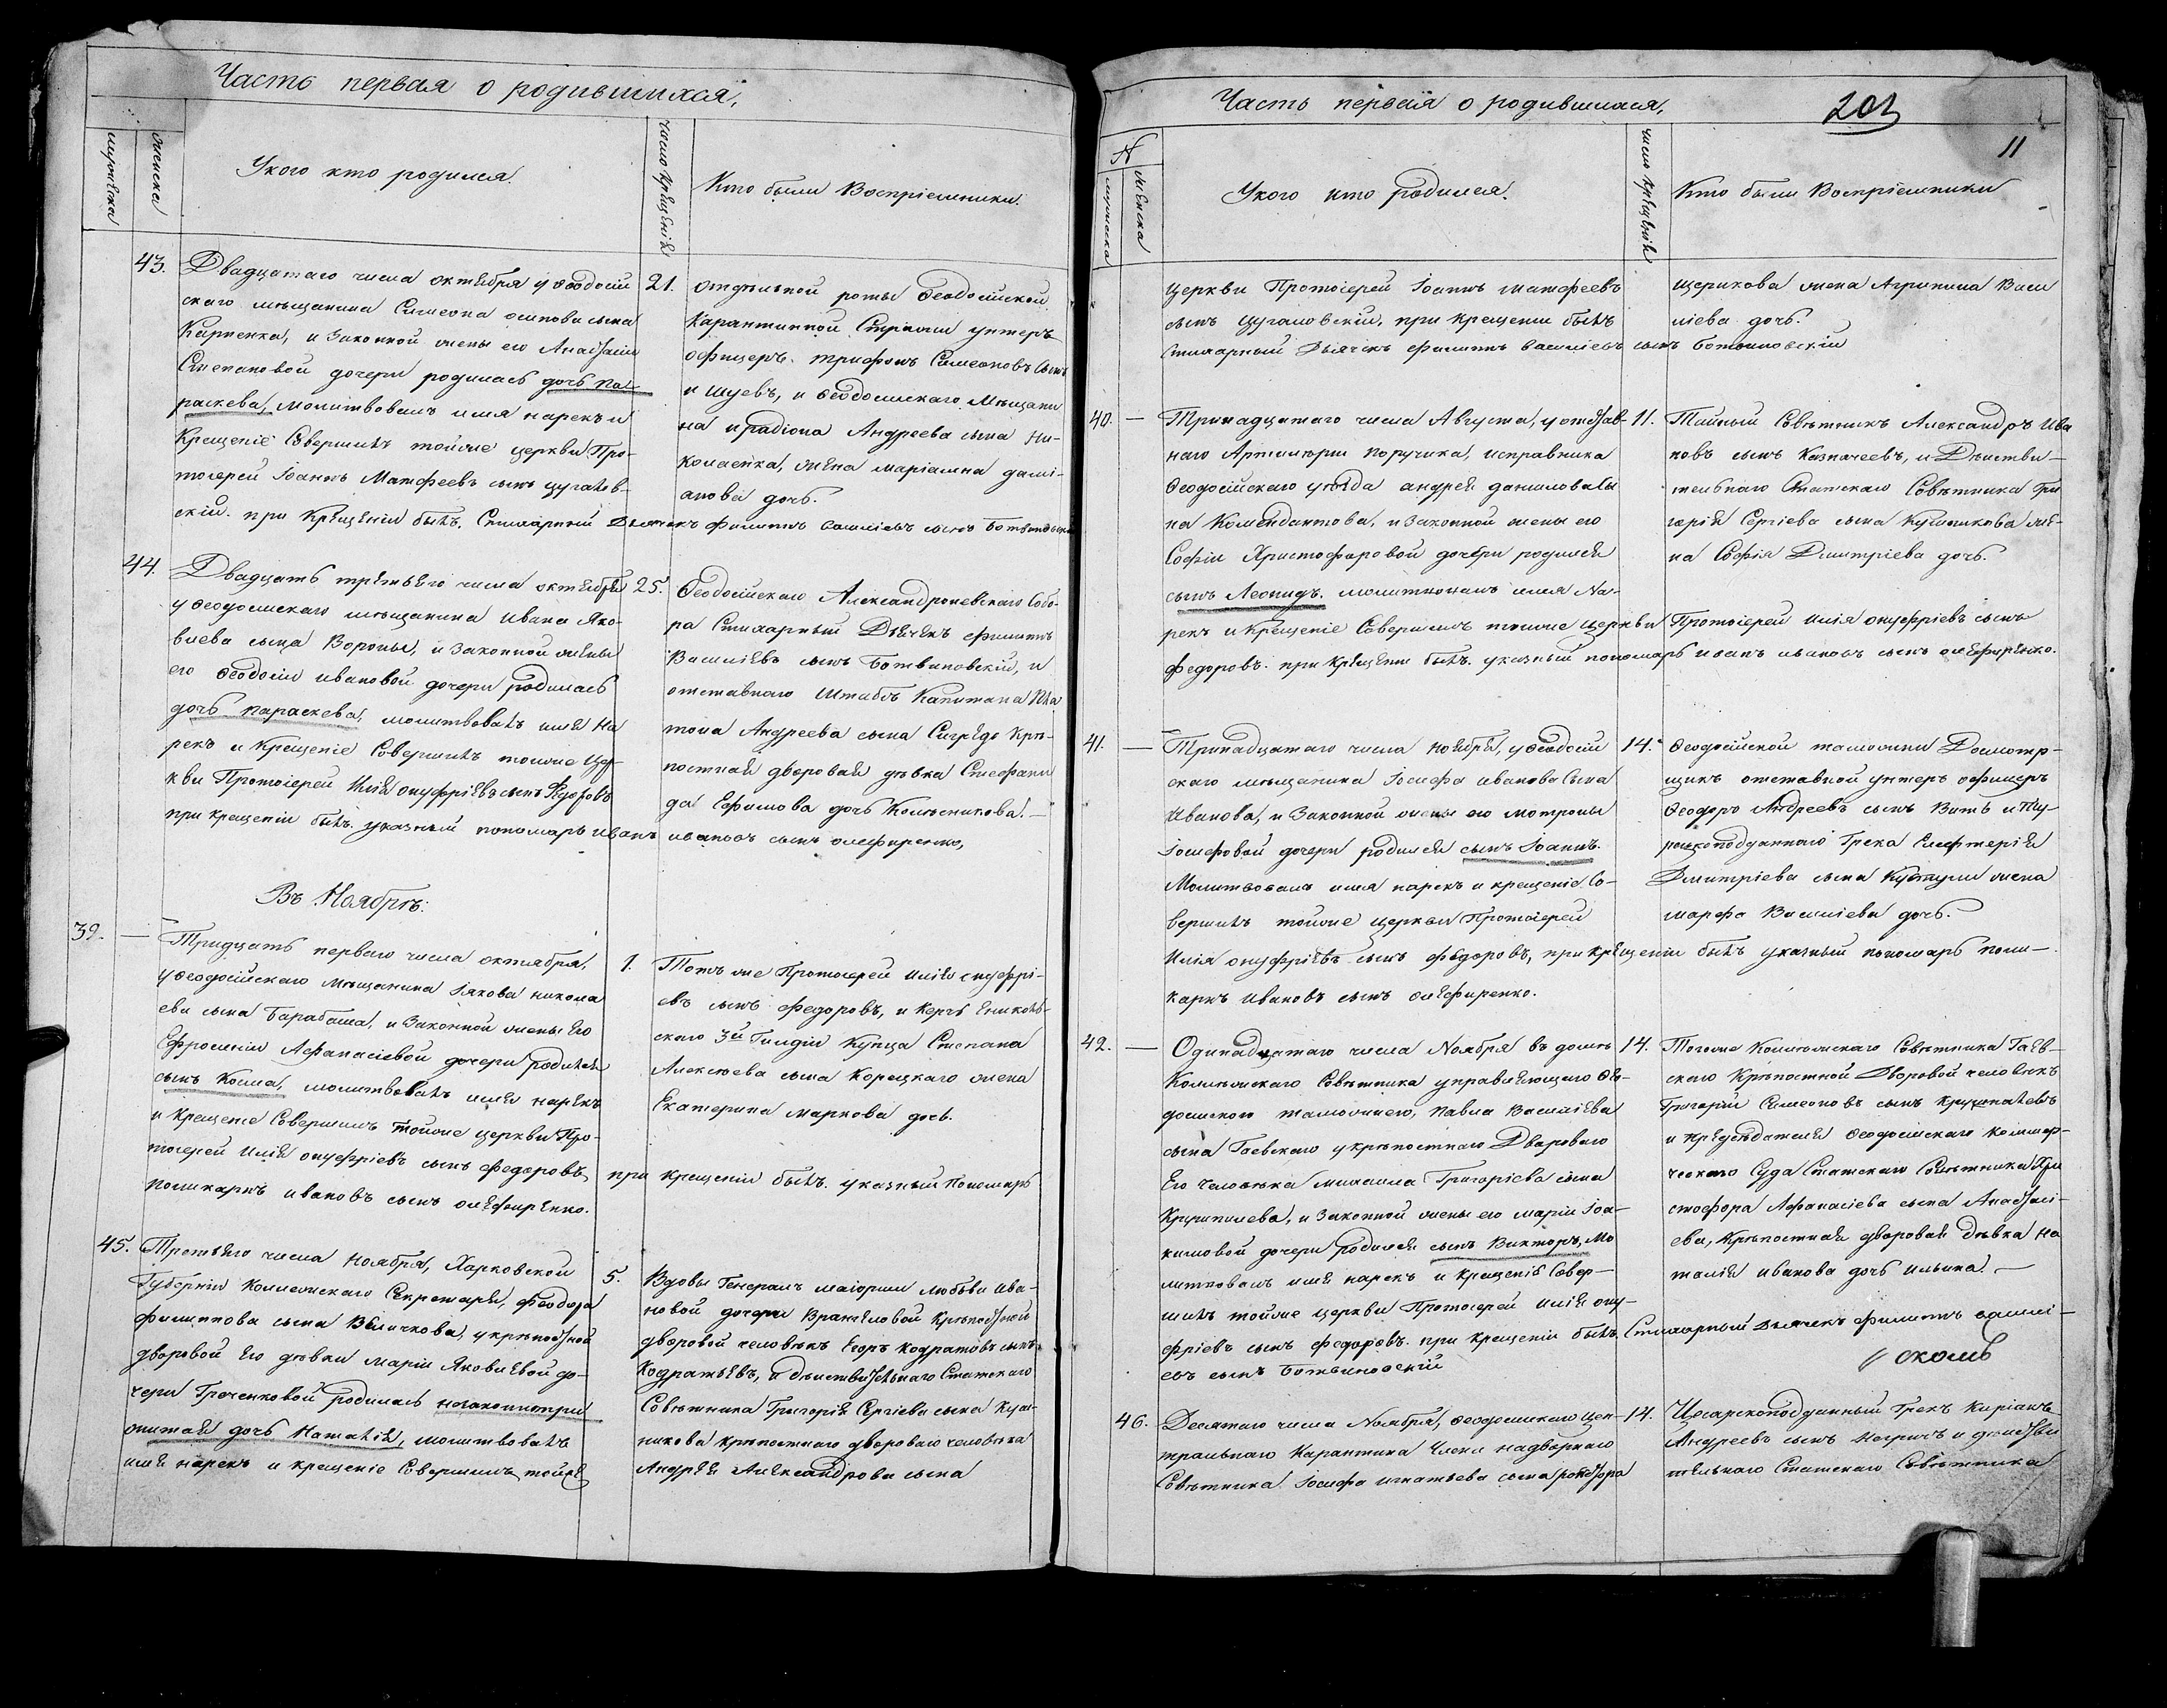 Часть первая о родившихся,
мужеска
женска
У кого кто родился.
число крещенія
Кто были Воспріемники.
43.
Двадцатаго числа октября у Ѳеодосій
скаго мѣщанина Симеона осипова сына
Карпенка, и Законной жены его Анастасіи
Степановой дочери родилась дочь Па-
раскева, молитвовалъ имя нарекъ и
Крещеніе Совершилъ тойже церкви Про-
тоіерей Іоаннъ Матфеевъ сынъ цугалов-
скій. при Крещеніи былъ. Стихарный дьячекъ филиппъ василіевъ сынъ Ботвиновскій
21.
отдѣльной роты Ѳеодосійской
Карантинной Стражи унтеръ
офицеръ. трифонъ Симеоновъ сынъ
и шуевъ, и Ѳеодосійскаго Мѣщани
на ирадіона Андреева сына Ни-
колаенка, жена маріамна дамі-
анова дочь.
44.
Двадцать третьяго числа октября
у Ѳеодосійскаго мѣщанина Ивана Яко-
влева сына Вороны, и Законной жены
его Ѳеодосіи ивановой дочери родилась
дочь параскева, молитвовалъ имя На
рекъ и Крещеніе Совершилъ тойже цер-
кви Протоіерей Илія онуфріевъ сынъ Федоровъ
при крещеніи былъ. указный пономарь иванъ ивановъ сынъ олефиренко,
25.
Ѳеодосійскаго Александроневскаго Собо-
ра Стихарный Дьячекъ филиппъ
Василіевъ сынъ Ботвиновскій, и
отставнаго Штабсъ Капитана Пла
тона Андреева сына Сигреда Крѣ-
постная дворовая дѣвка Стефани
да Ефимова дочь Колѣсникова.—
Въ Ноябрѣ:
39.
—
Тридцать перваго числа октября,
у Ѳеодосійскаго мѣщанина Іякова никола
ева сына Барабаша, и Законной жены Его
Ефросиніи Афанасіевой дочери родился
сынъ Косма, молитвовалъ имя нарекъ
и Крещеніе Совершилъ Тойже церкви Про-
тоіерей Илія онуфріевъ сынъ федоровъ, при крещеніи былъ. указный Пономарь
поликарпъ ивановъ сынъ олефиренко.
1.
Тотъ же Протоіерей Илія онуфрі-
евъ сынъ федоровъ, и Керчь Ениколь-
скаго 3й Гилдіи Купца Степана
Алексѣева сына Корецкаго жена
Екатерина маркова дочь.
45.
Третьяго числа ноября, Харковской
Губерніи Коллежскаго Секретаря, Феодора
филиппова сына Величкова, у крѣпостной
дворовой Его дѣвки маріи Яковлевой до-
чери Гроченковой родилась незаконнопри
житая дочь Наталія, молитвовалъ
имя нарекъ и крещеніе Совершилъ тойже
5.
Вдовы Генералъ маіорши любови ива-
новой дочери Врангеловой Крѣпостной
дворовой человѣкъ Егоръ кодратовъ сынъ
Кодратьевъ, и дѣйствительнаго Статскаго
Совѣтника Григорія Сергіева сына Куш-
никова крѣпостнаго двороваго человѣка
Андрея Александрова сына
Часть первая о родившихся,
202
11
N
мужеска
женска
У кого кто родился.
число крещенія
Кто были Воспріемники
церкви Протоіерей Іоаннъ матфеевъ
сынъ цугаловскій, при крещеніи былъ
Стихарный Дьячекъ филиппъ василіевъ сынъ Ботвиновскій
щерикова жена Агрипина Васи
ліева дочь.
40.
—
Тринадцатаго числа Августа, у отстав-
наго Артилюріи поручика, исправника
Ѳеодосійскаго уѣзда андрея данилова сы
на Комендантова, и Законной жены его
Софіи Христофоровой дочери родился
сынъ Леонидъ. молитвовалъ имя На-
рекъ и Крещеніе Совершилъ тойже церкви Протоіерей Илія онуфріевъ сынъ
федоровъ. при крещеніи былъ. указный пономарь иванъ ивановъ сынъ олефиренко.
11.
Тайный Совѣтникъ Александръ Ива
новъ сынъ Казначеевъ, и Дѣйстви-
тельнаго Статскаго Совѣтника Гри
горія Сергіева сына Кушникова же-
на Софія Дмитріева дочь.
41.
—
Тринадцатаго числа ноября, у Ѳеодосій
скаго мѣщанина Іосифа иванова Сына
Иванова, и Законной жены его мотроны
Іосифовой дочери родился сынъ Іоаннъ.
Молитвовалъ имя нарекъ и крещеніе Со-
вершилъ тойже церкви Протоіерей
Илія онуфріевъ сынъ федоровъ, при крещеніи былъ указный пономарь поли-
карпъ Ивановъ сынъ олефиренко.
14.
Ѳеодосійской таможни Досмотр-
щикъ отставной унтеръ офицеръ
Ѳеодоръ Андреевъ сынъ Витъ и Ту-
рецкоподданнаго Грека Елефтерія
Дмитріева сына жена
марфа Василіева дочь.
42.
—
Одинадцатаго числа Ноября въ домѣ
Колежскаго Совѣтника управляющаго Ѳео-
досійскою таможнею, павла Василіева
сына Гаевскаго у крѣпостнаго Двороваго
Его человѣка михаила Григоріева сына
Крушпилева, и Законной жены его маріи Іоа-
кимовой дочери родился сынъ Викторъ, Мо
литвовалъ имя нарекъ и крещеніе Совер-
шилъ тойже церкви Протоіерей Илія ону-
фріевъ сынъ федоровъ. при крещеніи былъ, Стихарный дьячекъ филиппъ василі-
евъ сынъ Ботвиновскій
14.
Тогоже Колежскаго Совѣтника Гаев-
скаго Крѣпостной Дворовой человѣкъ
Григорій Симеоновъ сынъ
и предсѣдателя Ѳеодосійскаго коммер-
ческаго Суда Статскаго Совѣтника Хри
стофора Афанасіева сына Анастасі-
ева, Крѣпостная дворовая дѣвка На
талія иванова дочь ильина.—
46.
Десятаго числа Ноября, Ѳеодосійскаго Цен-
тральнаго Карантина Члена надворнаго
Совѣтника Іосифа игнатьева сына
14.
Цесарскоподданный Грекъ Киріакъ
Андреевъ сынъ и дѣйстви
тельнаго Статскаго Совѣтника